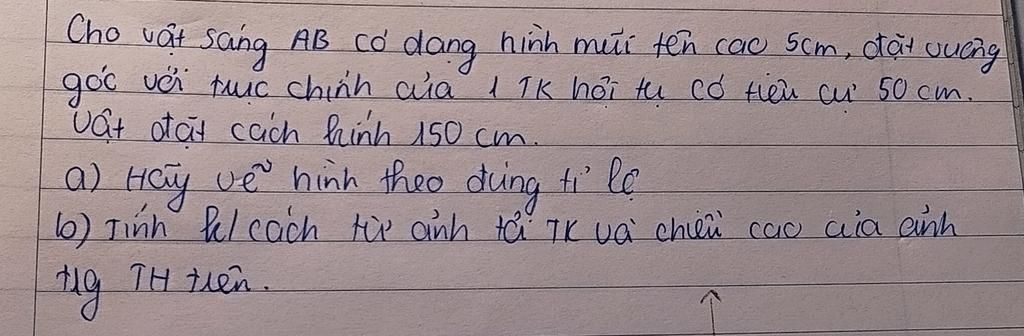 Cho vật sáng AB có dạng hình mũi tên cao 5cm, đặt vuông
góc với trục chính của 1 TK hội tụ có tiêu cự 50 cm.
Vật đặt cách kính 150 cm.
a) Hãy vẽ hình theo đúng tỉ lệ
b) Tính k/cách từ ảnh tới TK và chiều cao của ảnh
tng TH trên.